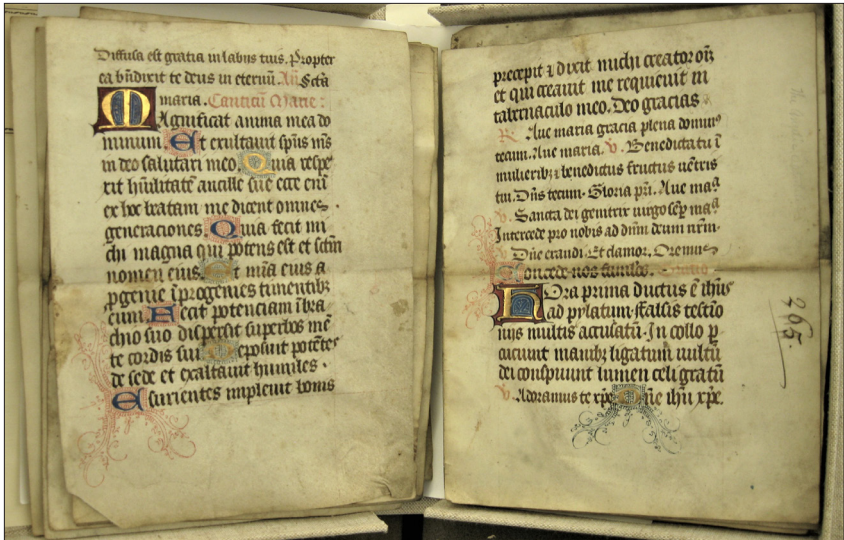 Diffusa est gratia in labiis tuis. Propter
ea bn̄dixit te deus in eternū. Añ. Sctā
maria. Canticū Marie:
Magnificat anima mea do
minum. Et exultauit spūs ms̄
in deo salutari meo. Quia respe
xit hūilitatē ancille sue ecce enī
ex hoc beatam me dicent omnes.
generaciones. Quia fecit mi
chi magna qui potens est et sctm̄
nomen eius. Et mīa eius a
ꝓgenie ī progenies timentibꝫ
eum. Fecit potenciam ī bra
chio suo dispersit superbos mē
te cordis sui. Deposuit potētes
de sede et exaltauit humiles.
Esurientes impleuit bonis
precepit ⁊ dixit michi creator oīz
et qui creauit me requieuit in
tabernaculo meo. Deo gracias
R. Aue maria gracia plena dominꝰ
tecum. Aue maria. v. Benedicta tu ī
mulieribꝫ ⁊ benedictus fructus uētris
tui. Dn̄s tecum. Gloria pr̄i. Aue maᵃ
v. Sancta dei genitrix uirgo sēp maᵃ
Intercede pro nobis ad dnm̄ deum nrm̄.
Dn̄e exaudi. Et clamor. Oremus
Concede nos famulos. Oratio
Hora prima ductus ē ihūs
ad pylatum. ffalsis testīo
niis multis accusatū. In collo ꝑ
cuciunt manibꝫ ligatum uultū
dei conspuunt lumen celi gratū
v. Adoramus te xp̄e. Dn̄e ihū xp̄e.
265.